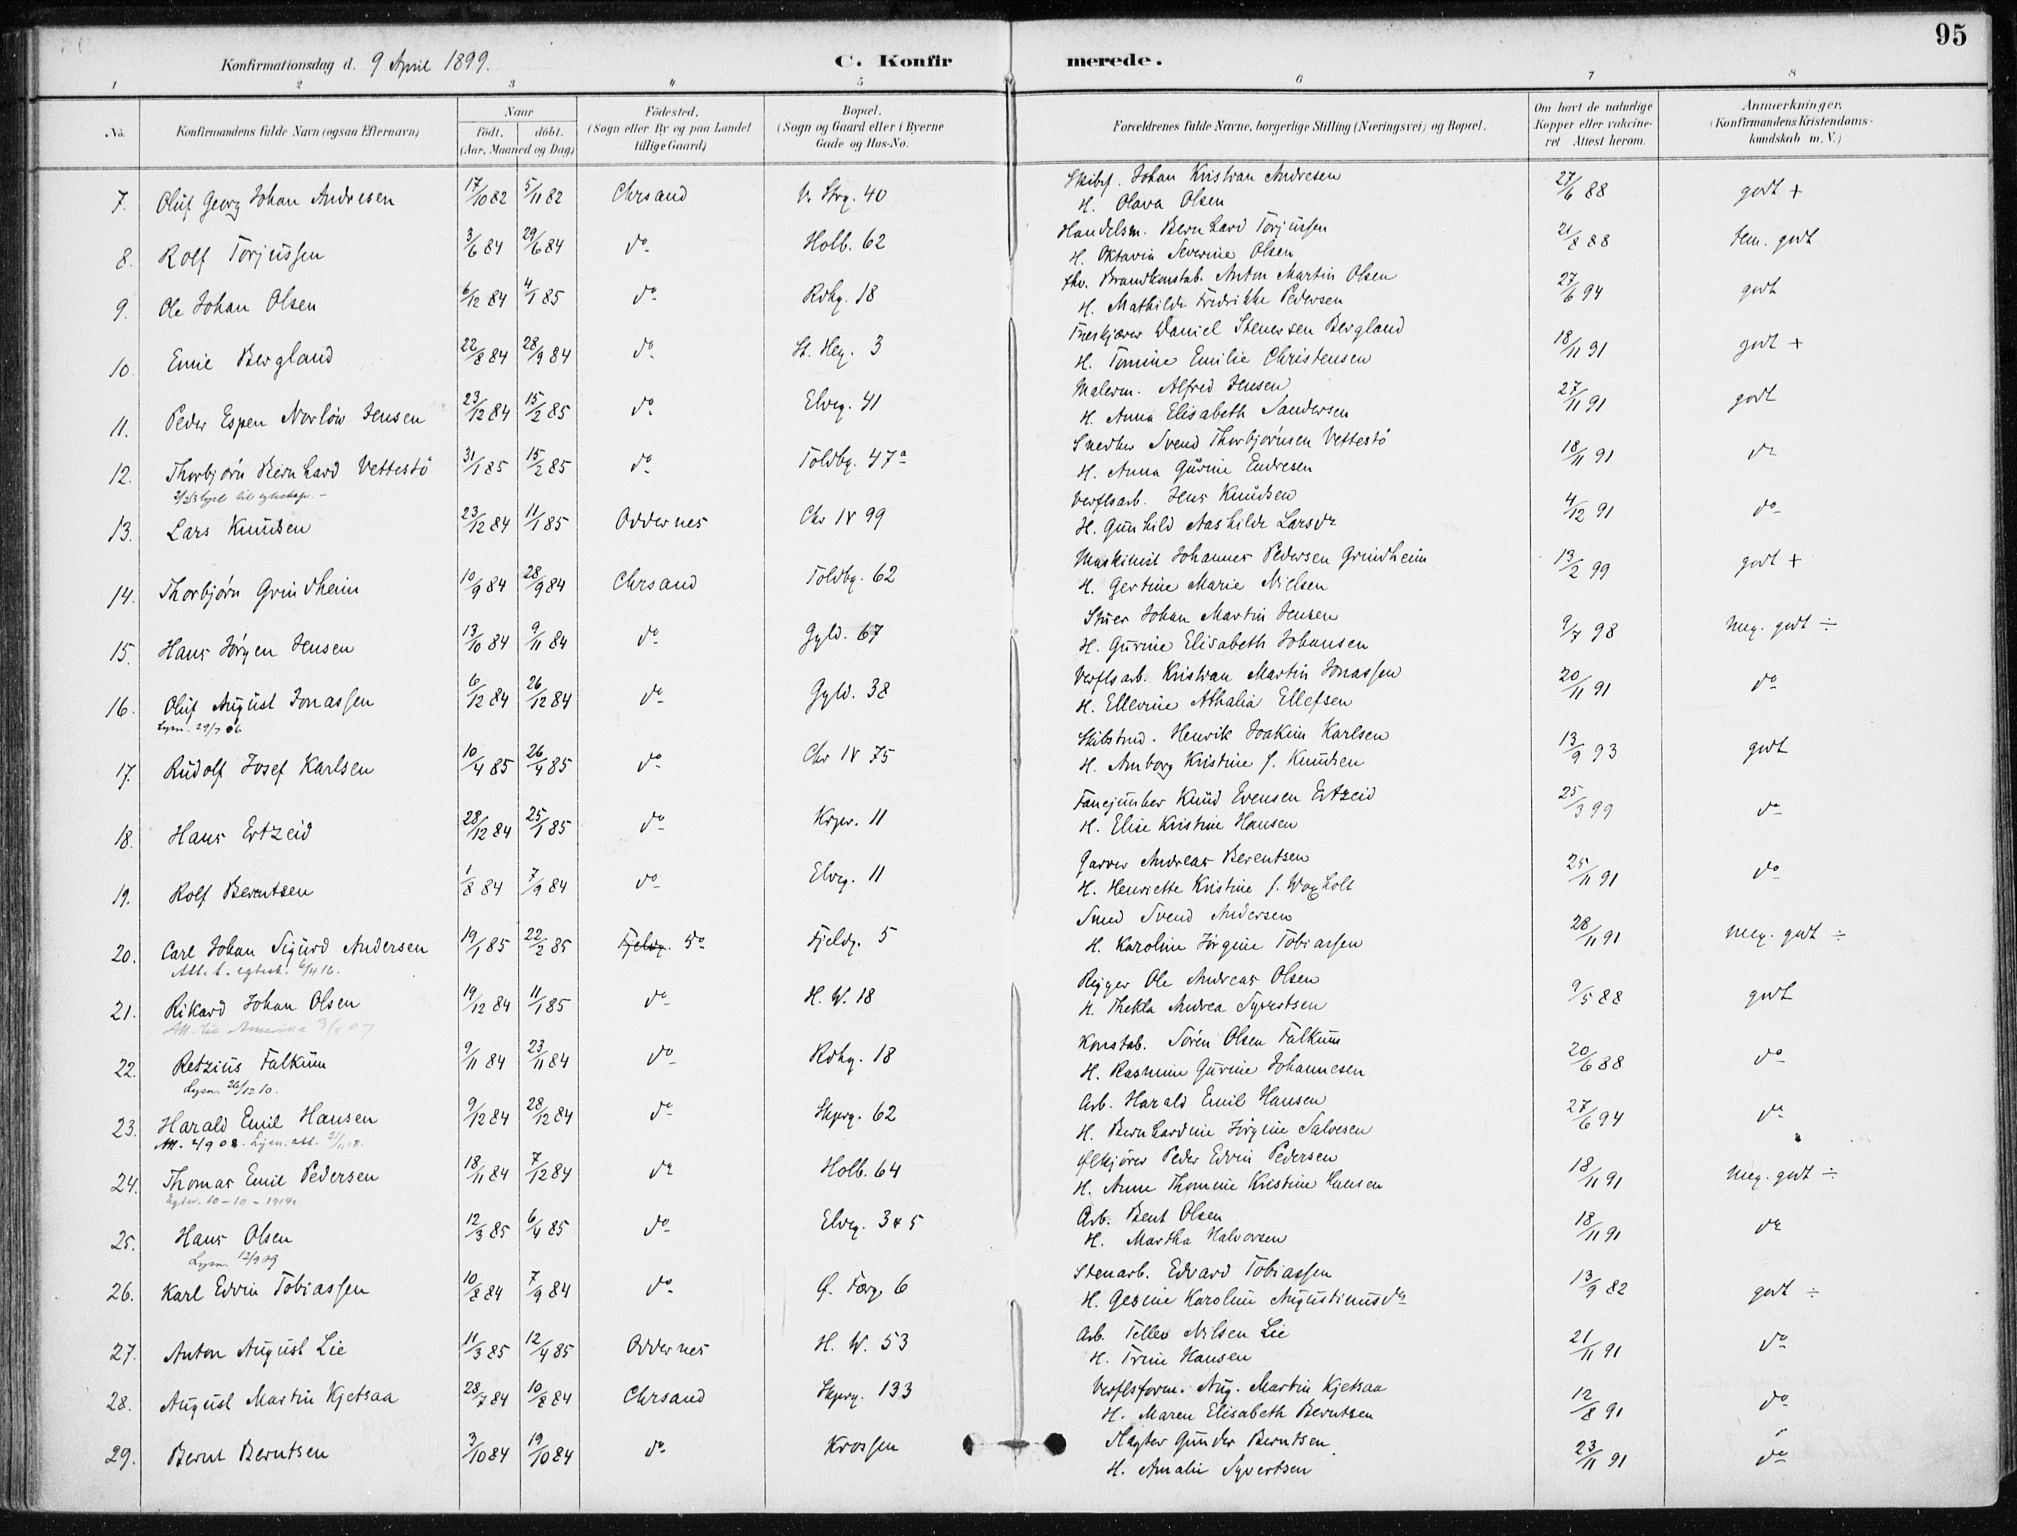 95
Konfirmationsdag d. 9 April 1899.
C. Konfirmerede.
1 2 3 4 5 6 7 8
No. Konfirmandens fulde Navn (ogsaa Efternavn) Naar født. døbt. (Aar, Maaned og Dag) Fødested. (Sogn eller By og paa Landet tillige Gaard) Bopæl. (Sogn og Gaard eller i Byerne Gade og Hus-No. Forældrenes fulde Navne, borgerlige Stilling (Næringsvei) og Bopæl. Om havt de naturlige Kopper eller vakcineret Attest herom. Anmærkninger. (Konfirmandens Kristendomskundskab m. V.)
7. Oluf Georg Johan Andresen 17/10 82 5/11 82 Chrsand V. Strg. 40 Skibsf. Johan Kristian Andresen 27/6 88 godt +
H. Olava Olsen
8. Rolf Torjussen 3/6 84 29/6 84 do Holb. 62 Handelsm. Bernhard Torjussen 21/8 88 Tem. godt
H. Oktavia Severine Olsen
9. Ole Johan Olsen 6/12 84 4/1 85 do Rdhg. 18 fhv. Brandkonstab. Anton Martin Olsen 27/6 94 godt
H. Mathilde Fredrikke Pedersen
10. Emil Bergland 22/8 84 28/9 84 do St. Heg. 3 Træskjærer Daniel Stenersen Bergland 18/11 91 godt +
H. Tomine Emilie Christensen
11. Peder Espen Norløv Jensen 23/12 84 15/2 85 do Elveg. 41 Malerm. Alfred Jensen 27/11 91 godt
H. Anna Elisabeth Sandersen
12. Thorbjørn Bernhard Vettestö 31/1 85 15/2 85 do Toldbg. 47a Snedker Svend Thorbjørnsen Vettestö 18/11 91 do
H. Anna Gurine Endresen
13. Lars Knudsen 23/12 84 11/1 85 Oddernes Chr IV 99 Verftsarb. Jens Knudsen 4/12 91 do
H. Gunhild Aashilde Larsdr
14. Thorbjørn Grindheim 10/9 84 28/9 84 Chrsand Toldbg. 62 Maskinist Johannes Pedersen Grindheim 13/2 99 godt +
H. Gertine Marie Nielsen
15. Hans Jørgen Jensen 13/10 84 9/11 84 do Gyld. 67 Stuer Johan Martin Jensen 9/7 98 Meg. godt ÷
H. Gurine Elisabeth Johansen
16. Oluf August Jonassen 6/12 84 26/12 84 do Gyld. 38 Verftsarb. Kristian Martin Jonassen 20/11 91 do
Lysn. 29/7 06
H. Ellevine Athalia Ellefsen
17. Rudolf Josef Karlsen 10/4 85 26/4 85 do Chr IV 75 Skibstmd. Henrik Joakim Karlsen 13/9 93 godt
H. Amborg Kristine f. Knudsen
18. Hans Ertzeid 28/12 84 25/1 85 do Krpr. 11 Fanejunker Knud Evensen Ertzeid 25/3 99 do
H. Elise Kristine Hansen
19. Rolf Berentsen 1/8 84 7/9 84 do Elveg. 11 Garver Andreas Berentsen 25/11 91 do
H. Henriette Kristine f. Waxholt
20. Carl Johan Sigurd Andersen 19/1 85 22/2 85 Fjeldg. do Fjeldg. 5 Smed Svend Andersen 28/11 91 Meg. godt ÷
Att. t. egtesk. 6/4 16.
H. Karoline Jørgine Tobiassen
21. Rikard Johan Olsen 19/12 84 11/1 85 do H. W. 18 Rejger Ole Andreas Olsen 9/5 88 godt
H. Thekla Andrea Syvertsen
22. Retzius Falkum 9/11 84 23/11 84 do Rdhg. 18 Konstab. Sören Olsen Falkum 20/6 88 do
Lysn. 26/12 10.
H. Rasmine Gurine Johannesen
23. Harald Emil Hansen 9/12 84 28/12 84 do Skprg. 62 Arb. Harald Emil Hansen 27/6 94 do
H. Bernhardine Jørgine Salvesen
24. Thomas Emil Pedersen 18/11 84 7/12 84 do Holb. 64 Ølkjører Peder Edvin Pedersen 18/11 91 Meg. godt ÷
10-10-1914
H. Anne Thomine Kristine Hansen
25. Hans Olsen 12/3 85 6/4 85 do Elveg. 345 Arb. Bent Olsen 18/11 91 do
Lysn. 12/9 09
H. Martha Halvorsen
26. Karl Edvin Tobiassen 10/8 84 7/9 84 do Ø. Færg. 6 Stenarb. Edvard Tobiassen 13/9 82 godt ÷
H. Gesine Karoline Augustinusdr
27. Anton August Lie 11/3 85 12/4 85 Oddernes H. W. 53 Arb. Tellev Nilsen Lie 21/11 91 do
H. Trine Hansen
28. August Martin Kjetsaa 28/7 84 10/8 84 Chrsand Skprg. 133 Verftsform. Aug. Martin Kjetsaa 12/8 91 do
H. Maren Elisabeth Berntsen
29. Bernt Berntsen 3/10 84 19/10 84 do Krossen Slagter Gunder Berntsen 23/11 91 do
H. Amalie Syvertsen